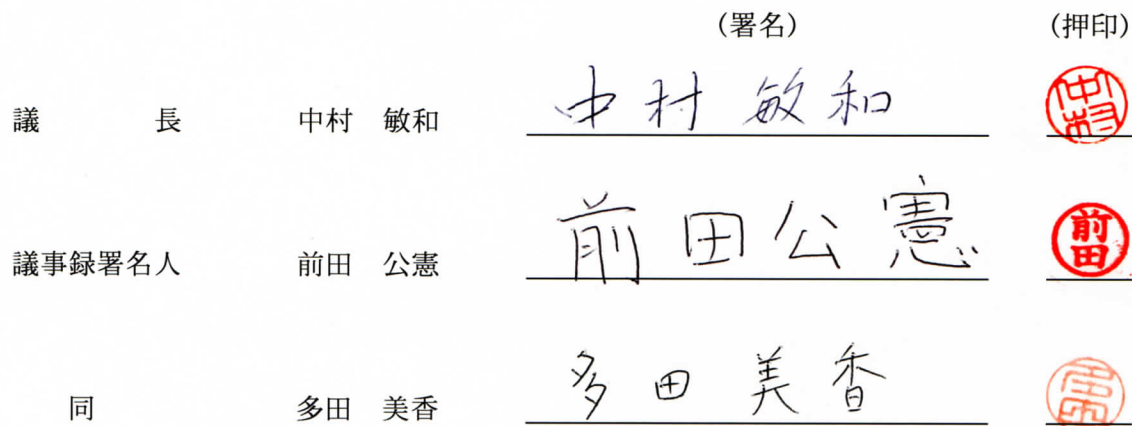 (署名) (押印)
議 長 中村 敏和 中村 敏和 中村
議事録署名人 前田 公憲 前田公憲 前田
同 多田 美香 多田 美香